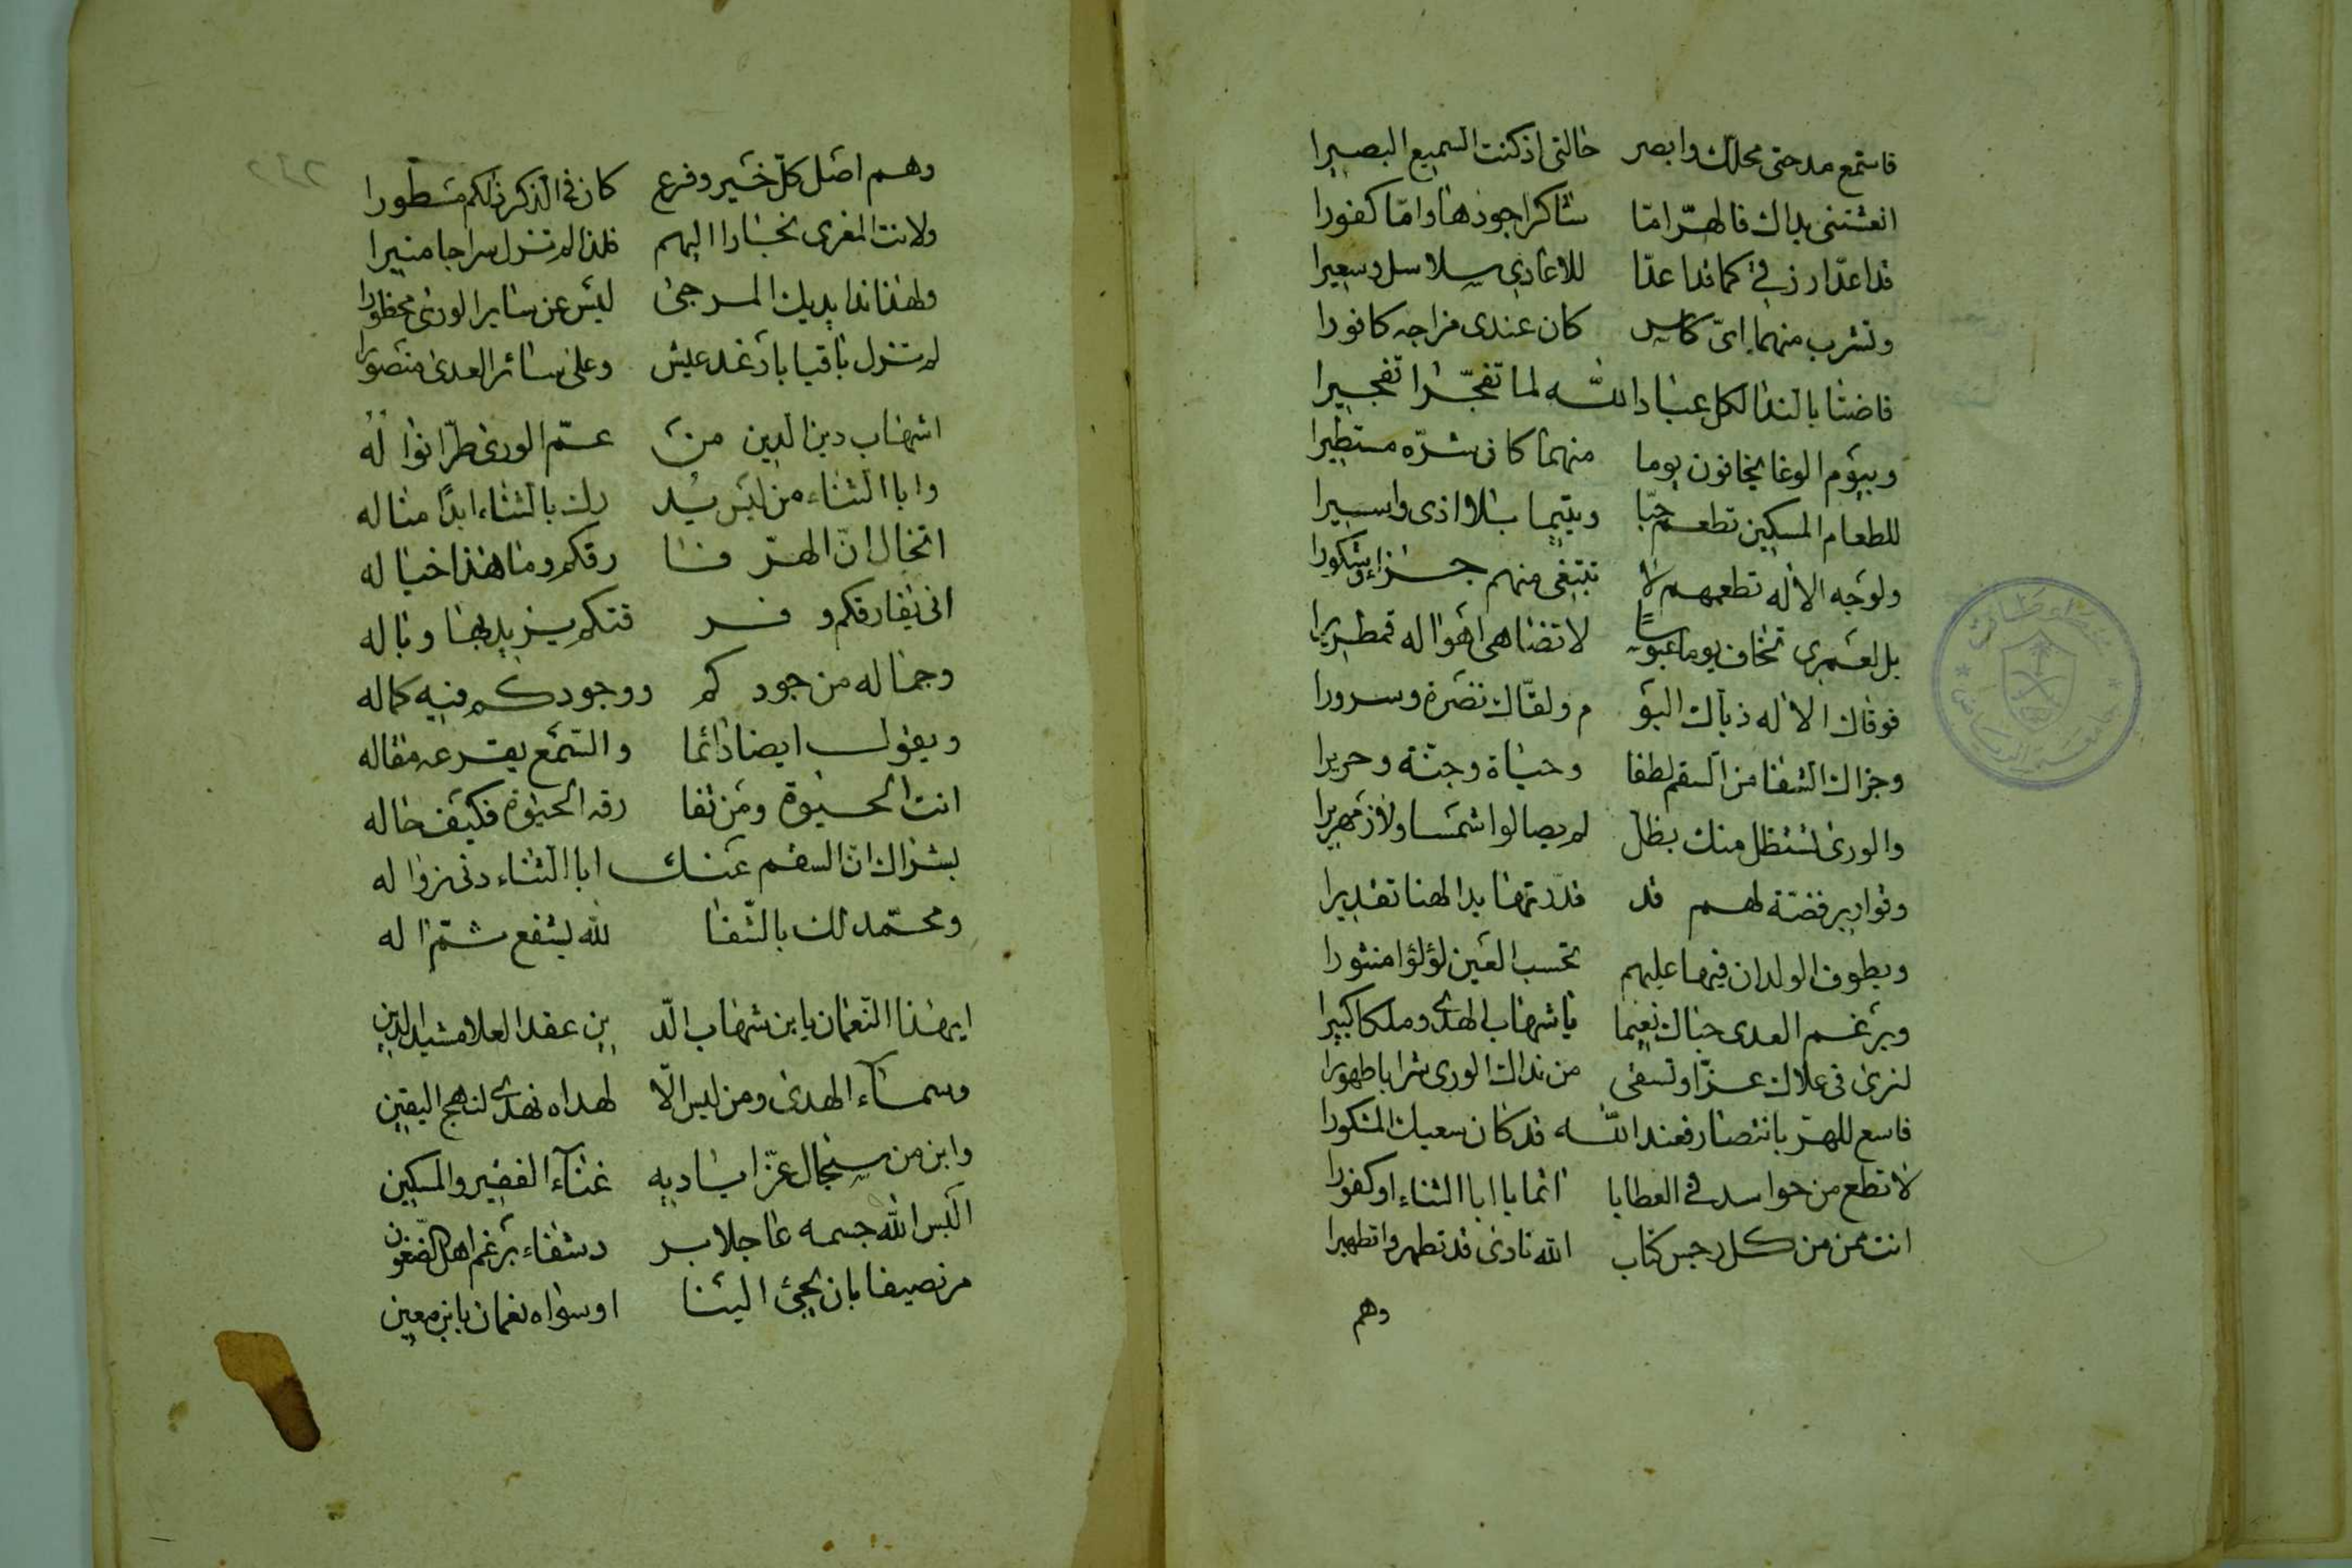 فاستمع مدحتى محلك وابصر حالتى اذ كنت السميع البصيرا
انعشتنى يداك فالهرّ امّا شاكرا جودها وامّا كفورا
قد اعدّا رزقى كما قد اعدّا للاعادى سلاسل وسعيرا
ونشرب منهما اىّ كاس كان عندى مزاجه كافورا
فاضتا بالندا لكل عباد الله لما تفجّرا تفجيرا
وبيوم الوغا يخافون يوما منهما كان شرّه مستطيرا
للطعام المسكين تطعم حبّا ويتيما بلا اذى واسيرا
ولوجه الاله تطعمهم لا تبتغى منهم جزاء وشكورا
بل لعمرى تخاف يوما عبوسًا لا تضاهى اهواله قمطريرا
فوقاك الاله ذياك اليو م ولقّاك نضرة وسرورا
وجزاك الشفا من السقم لطفا وحياة وجنة وحريرا
والورى تستظل منك بظل لم يصالوا شمسا ولا زمهريرا
وقوارير فضة لهم قد قدّرتها يدا لهنا تقديرا
ويطوف الولدان فيها عليهم تحسب العين لؤلؤا منثورا
وبرغم العدى حباك نعيما يا شهاب الهدى وملكا كبيرا
لنرى فى علاك عزّا وتسقى من نداك الورى شرابا طهورا
فاسع للهرّ بانتصار فعند الله قد كان سعيك المشكورا
لا تطع من حواسد فى العطايا اثما يا ابا الثناء او كفورا
انت ممن من كل رجس كتاب الله نادى قد تطهروا تطهيرا
وهم
وهم اصل كلّ خير وفرع كان فى الذكر ذلكم مسطورا
ولانت المغرى نجارا اليهم فلذا لم تنزل سراجا منيرا
ولهذا ندا يديك المرجى ليس عن ساير الورى محظورا
لم تزل باقيا بارغد عيش وعلى سائر العدى منصورا
اشهاب دين الدين من عمّ الورى طرّا نواله
وابا الثناء من ليس يد رك بالثناء ابدًا مثاله
اتخال انّ الهرّ فا رقكم وما هذا خياله
انى يفارقكم وفر قتكم يزيد بها وباله
وجماله من جود كم ووجودكم فيه كماله
ويقول ايضا دائما والسّمع يقرعه مقاله
انت الحيوة ومن تفا رقه الحيوة فكيف حاله
بشراك انّ السقم عنك ابا الثناء دنى زواله
ومحمّد لك بالشّفا لله يشفع ثمّ اله
ايهذا النعمان يا بن شهاب الدّ ين عقد العلا مشيد الدين
وسمآء الهدى ومن ليس الّا لهداه نهدى لنهج اليقين
وابن من سنجال عزّ اياديه غنآء الفقير والمسكين
البس الله جسمه عاجلا بر دشفاء برغم اهل الضغون
مر نصيفا بان يجئ الينا او سواه نعمان يا بن معين